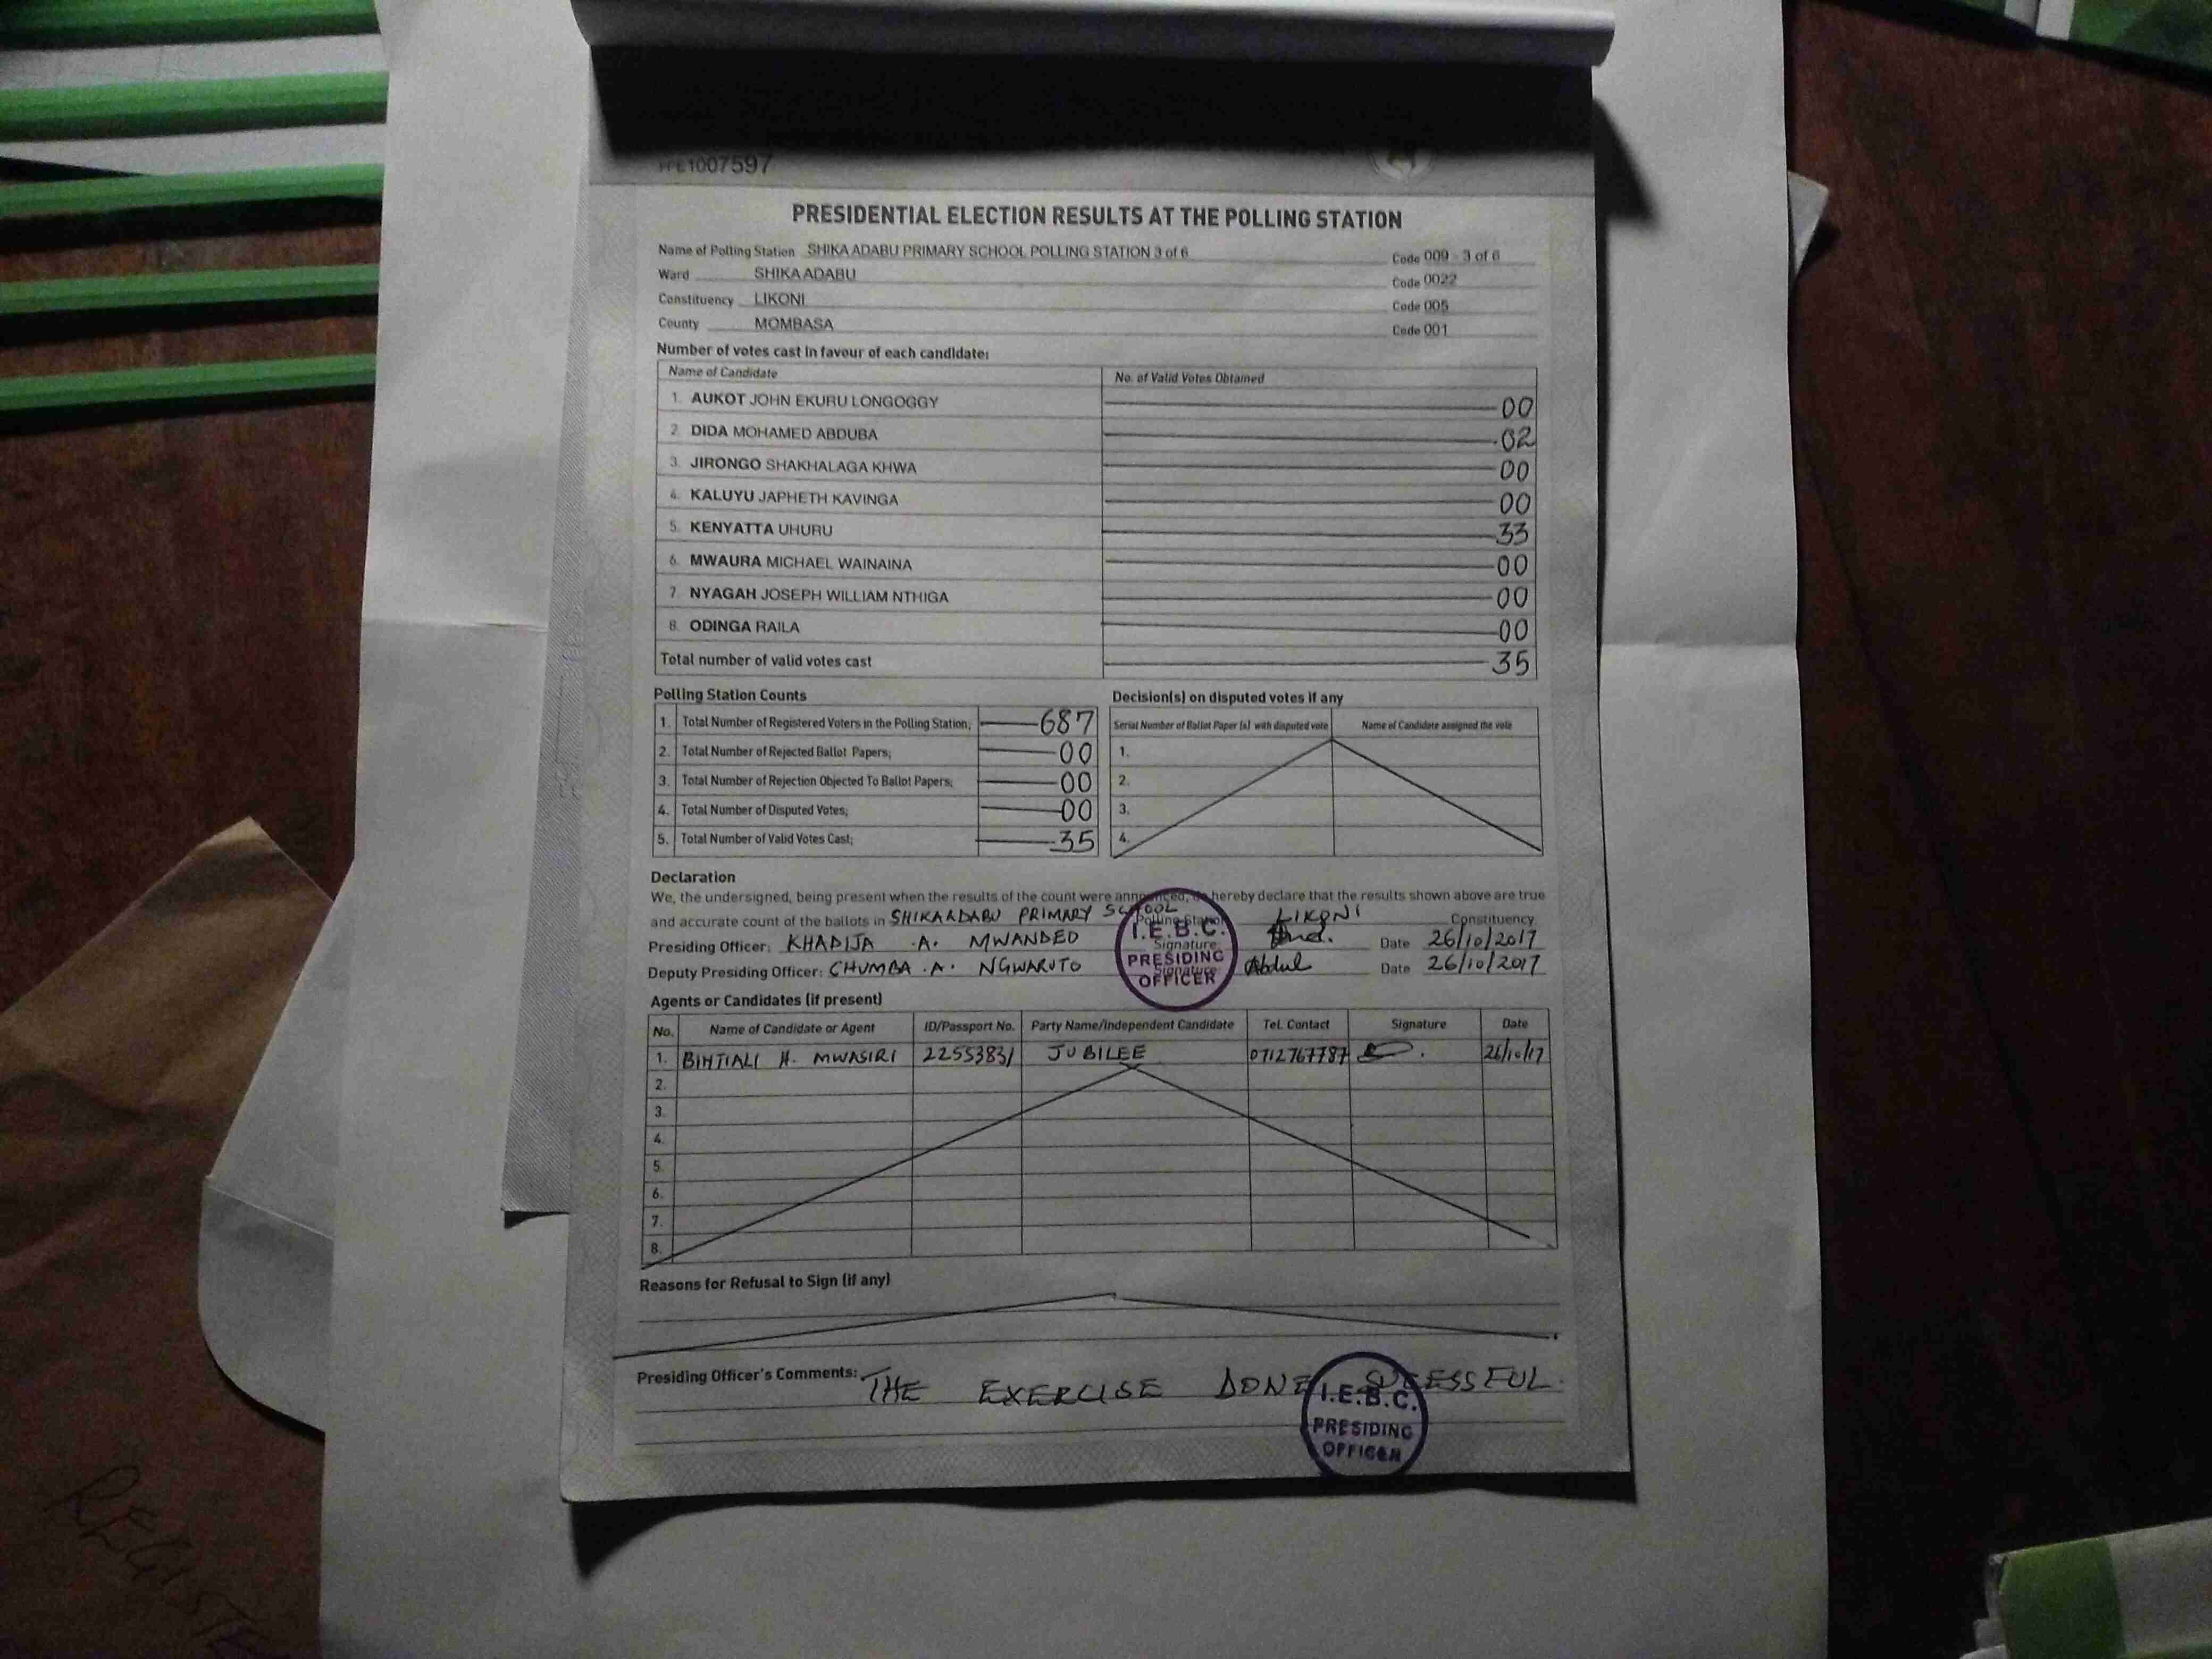 1007597
PRESIDENTIAL ELECTION RESULTS AT THE POLLING STATION
Name of Polling Station SHIKA ADABU PRIMARY SCHOOL POLLING STATION 3 of 6 Code 009 - 3 of 6
Ward SHIKA ADABU Code 0022
Constituency LIKONI Code 005
County MOMBASA Code 001
Number of votes cast in favour of each candidate:
Name of Candidate No. of Valid Votes Obtained
1. AUKOT JOHN EKURU LONGOGGY 00
2. DIDA MOHAMED ABDUBA 02
3. JIRONGO SHAKHALAGA KHWA 00
4. KALUYU JAPHETH KAVINGA 00
5. KENYATTA UHURU 33
6. MWAURA MICHAEL WAINAINA 00
7. NYAGAH JOSEPH WILLIAM NTHIGA 00
8. ODINGA RAILA 00
Total number of valid votes cast 35
Polling Station Counts Decision(s) on disputed votes if any
Serial Number of Ballot Paper (s) with disputed vote Name of Candidate assigned the vote
1. Total Number of Registered Voters in the Polling Station; 687
2. Total Number of Rejected Ballot Papers; 00 1.
3. Total Number of Rejection Objected To Ballot Papers; 00 2.
4. Total Number of Disputed Votes; 00 3.
5. Total Number of Valid Votes Cast; 35 4.
Declaration
We, the undersigned, being present when the results of the count were announced, do hereby declare that the results shown above are true
and accurate count of the ballots in SHIKAADABU PRIMARY SCHOOL Polling Station LIKONI Constituency
Presiding Officer: KHADIJA .A. MWANDEO Signature: Date 26/10/2017
Deputy Presiding Officer: CHUMBA .A. NGWARUTO Signature: Abdul Date 26/10/2017
I.E.B.C.
PRESIDING
OFFICER
Agents or Candidates (if present)
No. Name of Candidate or Agent ID/Passport No. Party Name/Independent Candidate Tel. Contact Signature Date
1. BINTIALI H. MWASIRI 22553831 JUBILEE 0712767787 26/10/17
2.
3.
4.
5.
6.
7.
8.
Reasons for Refusal to Sign (if any)
Presiding Officer's Comments: THE EXERCISE DONE SUCESSFUL.
I.E.B.C.
PRESIDING
OFFICER